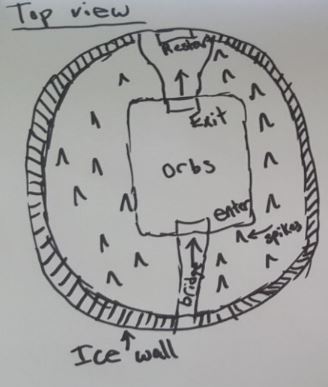 Top view
Restart
Exit
Orbs
enter
spikes
bridge
Ice wall